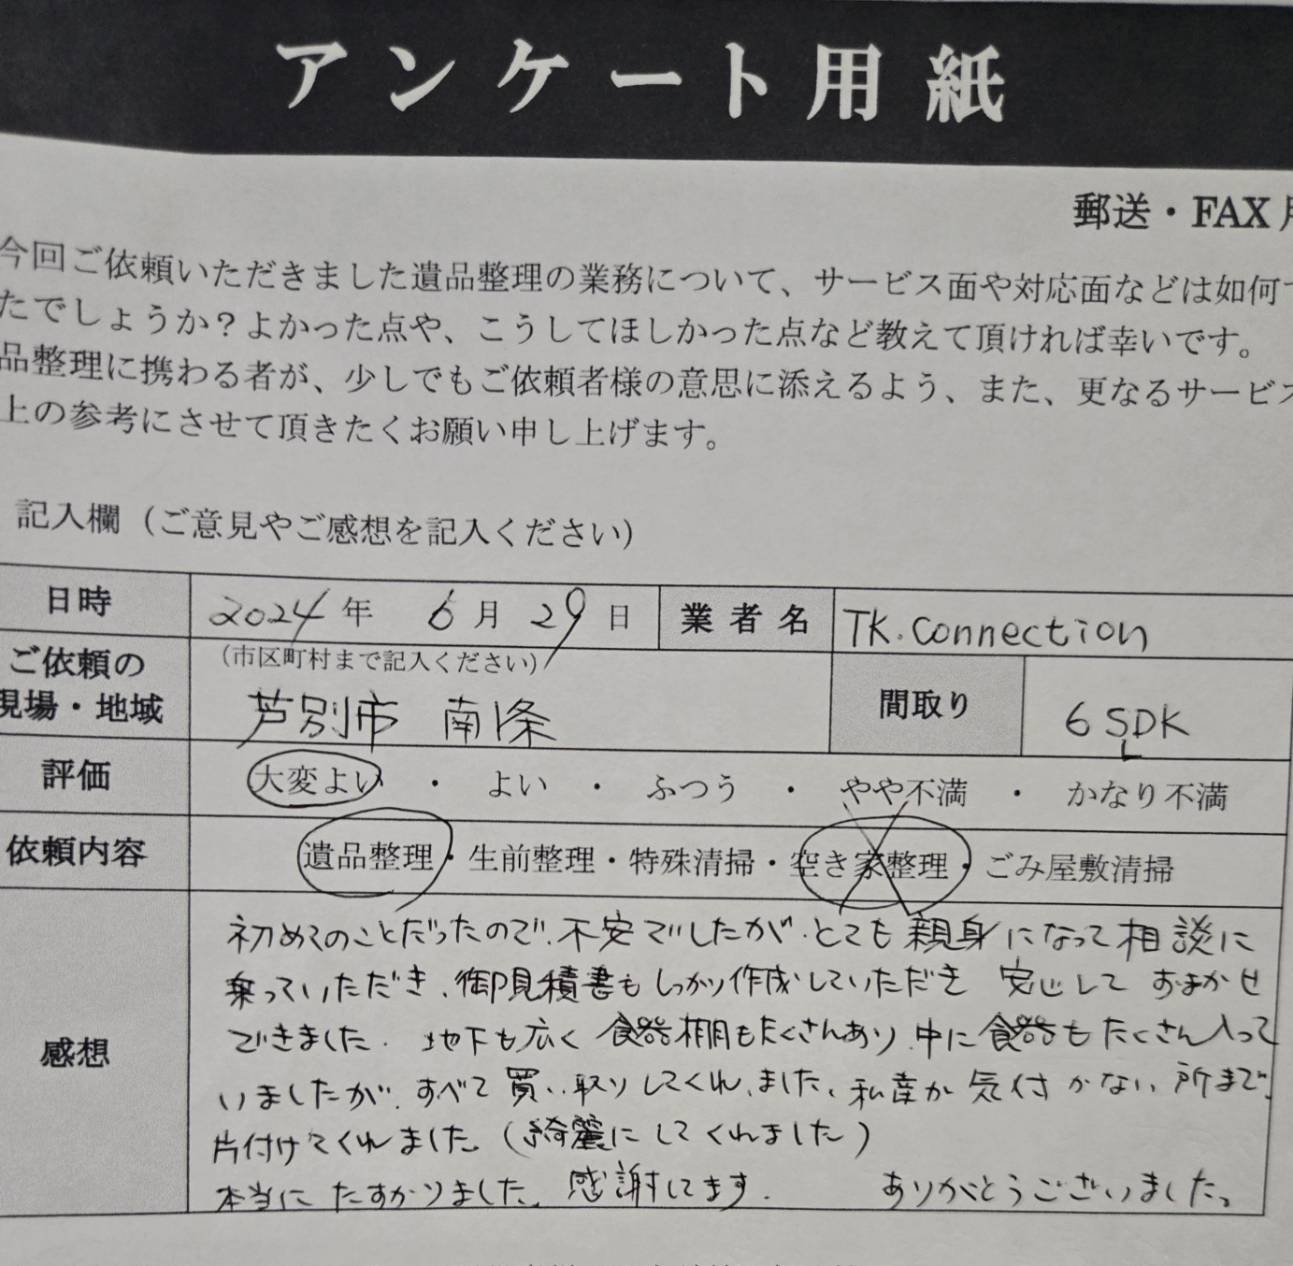 アンケート用紙
郵送・FAX
今回ご依頼いただきました遺品整理の業務について、サービス面や対応面などは如何で
たでしょうか？よかった点や、こうしてほしかった点など教えて頂ければ幸いです。
品整理に携わる者が、少しでもご依頼者様の意思に添えるよう、また、更なるサービス
上の参考にさせて頂きたくお願い申し上げます。
記入欄（ご意見やご感想を記入ください）
日時 2024年 6月 29日 業者名 TK.Connection
ご依頼の現場・地域 （市区町村まで記入ください） 芦別市 南 条 間取り 6SLDK
評価 大変よい ・ よい ・ ふつう ・ やや不満 ・ かなり不満
依頼内容 遺品整理・生前整理・特殊清掃・空き家整理・ごみ屋敷清掃
感想
初めてのことだったので、不安でしたが、とても親身になって相談に
乗っていただき、御見積書もしっかり作成していただき 安心して おまかせ
できました。 地下も広く 食器棚もたくさんあり 中に食器もたくさん入って
いましたが、すべて買い取りしてくれました、私達が気付かない所まで、
片付けてくれました。(綺麗にしてくれました)
本当にたすかりました。感謝してます. ありがとうございました。